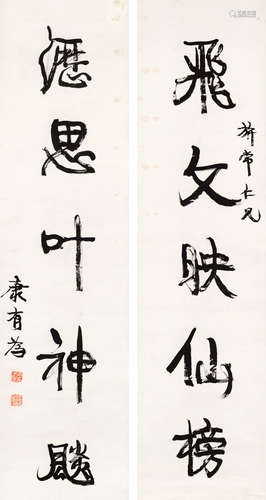 飛文映仙榜
旂常仁兄
瀝思叶神飈
康有為